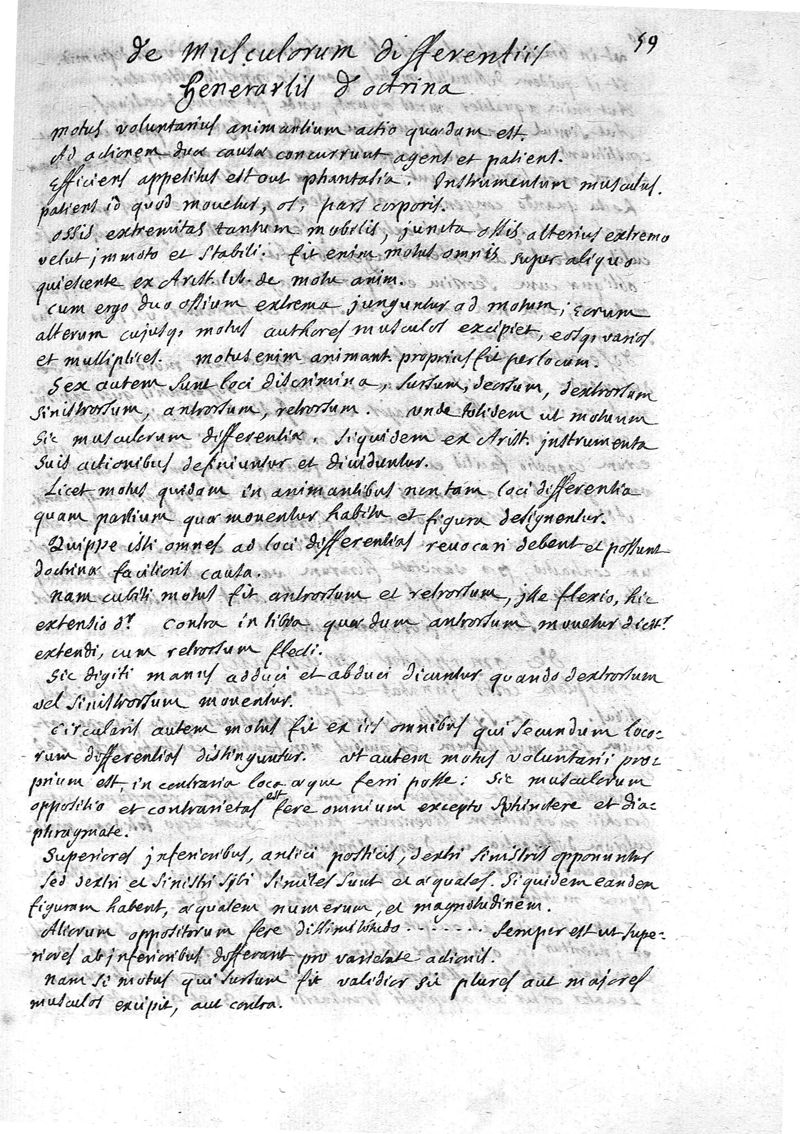 59
De Musculorum differentiis
Generarlis Doctrina
Motus voluntarius animantium actio quædam est.
Ad actionem duæ causæ concurrunt agens et patiens.
Efficiens appetitus est aut phantasia. Instrumentum musculus.
patiens id quod movetur, os, pars corporis.
Ossis extremitas tantum mobilis, juncta ossis alterius extremo
velut immoto et stabili. fit enim motus omnis super aliquo
quiescente ex Arist. lib. de motu anim.
Cum ergo duo ossium extrema junguntur ad motum; eorum
alterum cujusq; motus authores musculos excipiet, eosq; varios
et multiplices. motus enim animant. proprius fit per locum.
Sex autem sunt loci discrimina, sursum, deorsum, dextrorsum
sinistrorsum, antrorsum, retrorsum. unde totidem ut motuum
sic musculorum differentiæ. siquidem ex Arist. instrumenta
suis actionibus definiuntur et dividuntur.
Licet motus quidam in animantibus non tam loci differentia
quam partium quæ moventur habitu et figura designentur.
Quippe isti omnes ad loci differentias revocari debent et possunt
doctrinæ facilioris causa.
Nam cubiti motus fit antrorsum et retrorsum, ille flexio, hic
extensio dr. Contra in tibia quæ dum antrorsum movetur dicitr
extendi, cum retrorsum flecti.
Sic digiti manus adduci et abduci dicuntur quando dextrorsum
vel sinistrorsum moventur.
Circularis autem motus fit ex iis omnibus qui secundum loco-
rum differentias distinguntur. Ut autem motus voluntarii pro-
prium est, in contraria loca æque ferri posse: sic musculorum
oppositio et contrarietas est fere omnium excepto sphinctere et dia-
phragmate.
Superiores inferioribus, antici posticis, dextri sinistris opponuntur
sed dextri et sinistri sibi similes sunt et æquales. Siquidem eandem
figuram habent, æqualem numerum, et magnitudinem.
Aliorum oppositorum fere dissimilitudo ....... semper est ut supe-
riores ab inferioribus differant pro varietate actionis.
Nam si motus qui sursum fit validior sic plures aut majores
musculos excipit, aut contra.